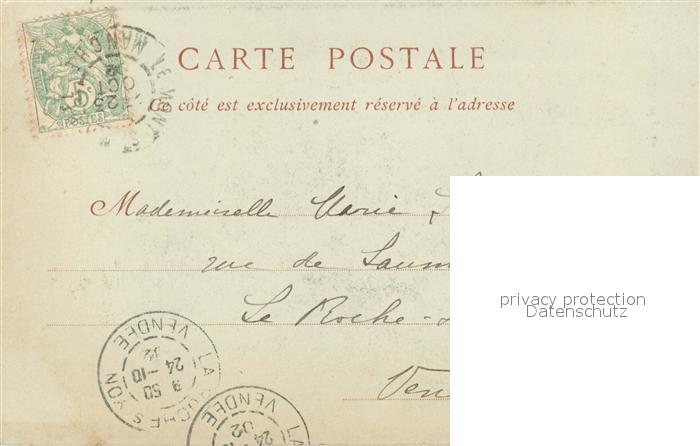 CARTE POSTALE
Ce côté est exclusivement réservé à l'adresse
Mademoiselle Marie
rue de
Le Roche-
privacy protection
Datenschutz
LA ROCHE S YON
VENDEE
9 50
24-10
02
LA
VENDEE
24
02
POSTES